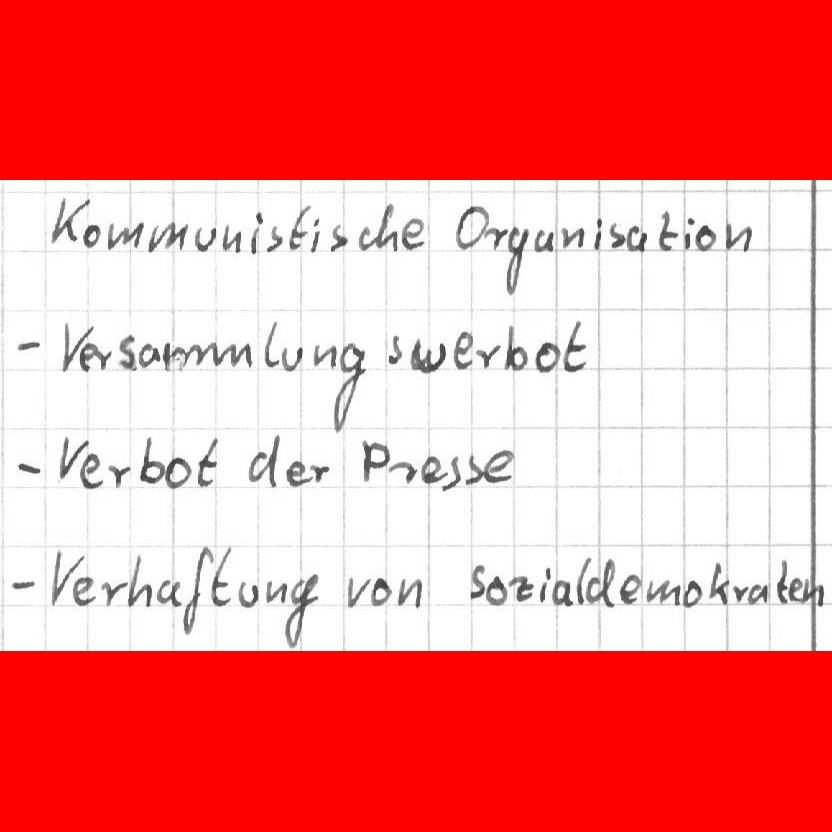 Kommunistische Organisation
- Versammlungswerbot
- Verbot der Presse
- Verhaftung von Sozialdemokraten